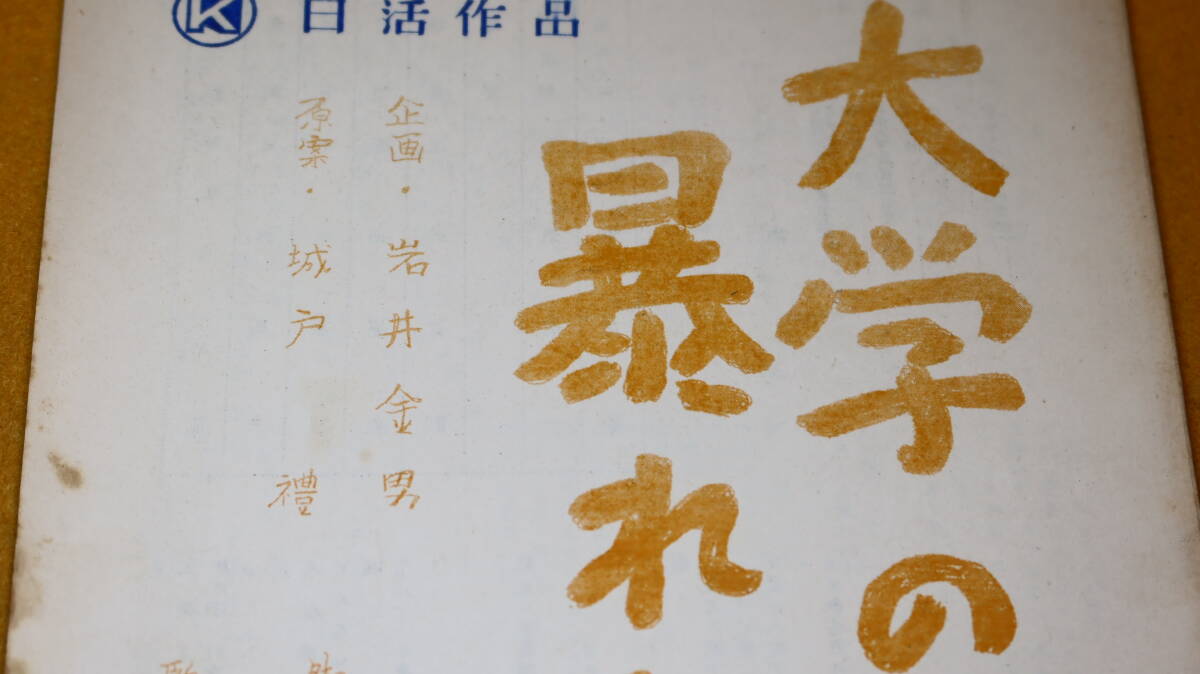 K 日活作品
大学の
暴れ
企画・岩井金男
原案・城戸禮